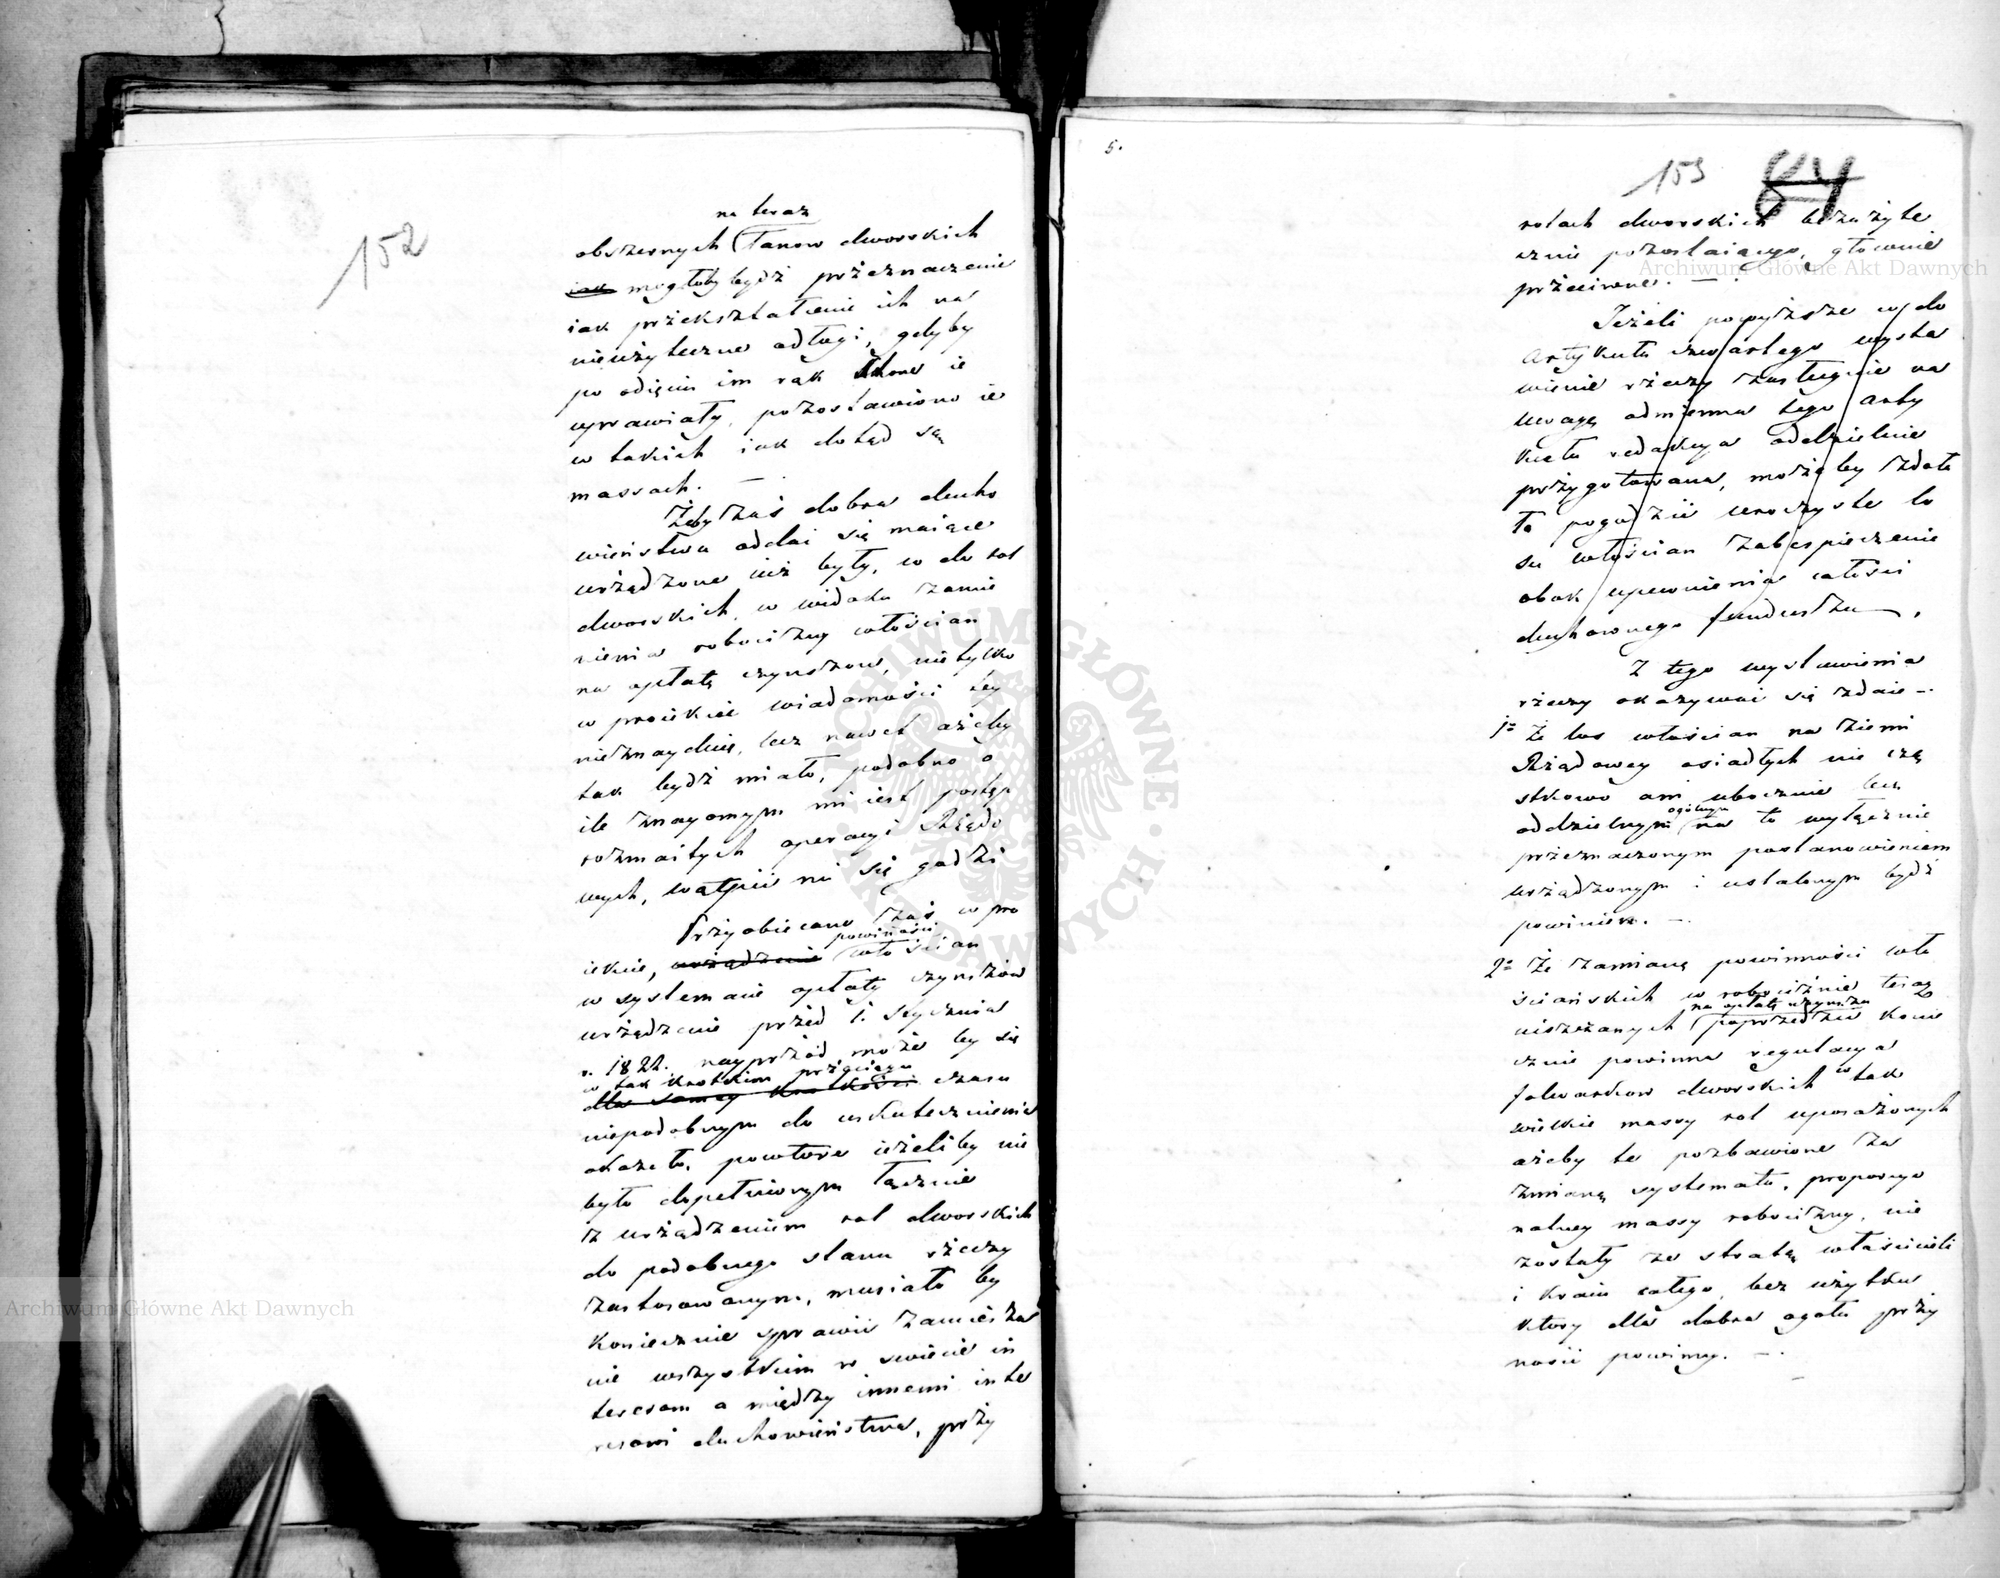 152
na teraz
obszernych łanow dworskich
iak mogłoby bydź przeznaczenie
iak przekształcenie ich na
nieużyteczne odłogi, gdyby
po odięciu im rąk które ie
uprawiały, pozostawiono ie
w takich iak dotąd są
massach. —
Żeby zaś dobra ducho
wieństwu oddać się maiące
urządzone iuż były, w do rol
dworskich, w widoku zamie
nienia robocizny włościan
na opłatę czynszow, nietylko
w proiekcie wiadomości tey
nieznayduię, lecz nawet ażeby
tak bydź miało, podobno o
ile znajomym mi iest postęp
rozmaitych operacyi Rządo
wych, wątpić mi się godzi
Przyobiecane zaś w pro
iekcie, urządzenie włościan
powinności
w systemacie opłaty czynszów
urządzenie przed 1. Stycznia
r. 1822. nayprzód może by się
w tak krotkim przeciągu
dla samey krotkości czasu
niepodobnym do uskutecznienia
okazało, powtore ieżeliby nie
było dopełnionym łącznie
z urządzeniem rol dworskich
do podobnego stanu rzeczy
zastosowanym, musiało by
koniecznie sprawić zamiesza
nie wszystkim w swiecie in
teresom a między innemi inte
resowi duchowieństwa, przy
5.
153
84
rolach dworskich bezużyte
cznie pozostaiącego, głownie
przeciwne. —
Jeżeli powyższe w do
Artykułu czwartego wysta
wienie rzeczy zasługuie na
uwagę odmienna tego Arty
kułu redakcya oddzielnie
przygotowana, możeby zdoła
ła pogodzić uroczyste lo
su włościan zabespieczenie
obok upewnienia całości
duchownego funduszu —.
Z tego wystawienia
rzeczy okazywać się zdaie —.
1º Że los włościan na ziemi
Rządowey osiadłych nie czą
stkowo ani ubocznie lecz
oddzielnym na to wyłącznie
ogólnym
przeznaczonym postanowieniem
urządzonym i ustalonym bydź
powinien. —
2º Że zamianę powinności wło
ściańskich w robociźnie teraz
na opłatę czynszu
uiszczanych poprzedzić konie
cznie powinna regulacya
folwarkow dworskich w tak
wielkie massy rol uposażonych
ażeby te pozbawione za
zmianą systematu, proporcyo
nalney massy robocizny, nie
zostały ze stratą właścicieli
i kraiu całego, bez użytku
ktory dla dobra ogołu przy
nosić powinny. —.
Archiwum Główne Akt Dawnych
Archiwum Główne Akt Dawnych
ARCHIWUM GŁÓWNE · AKT DAWNYCH ·